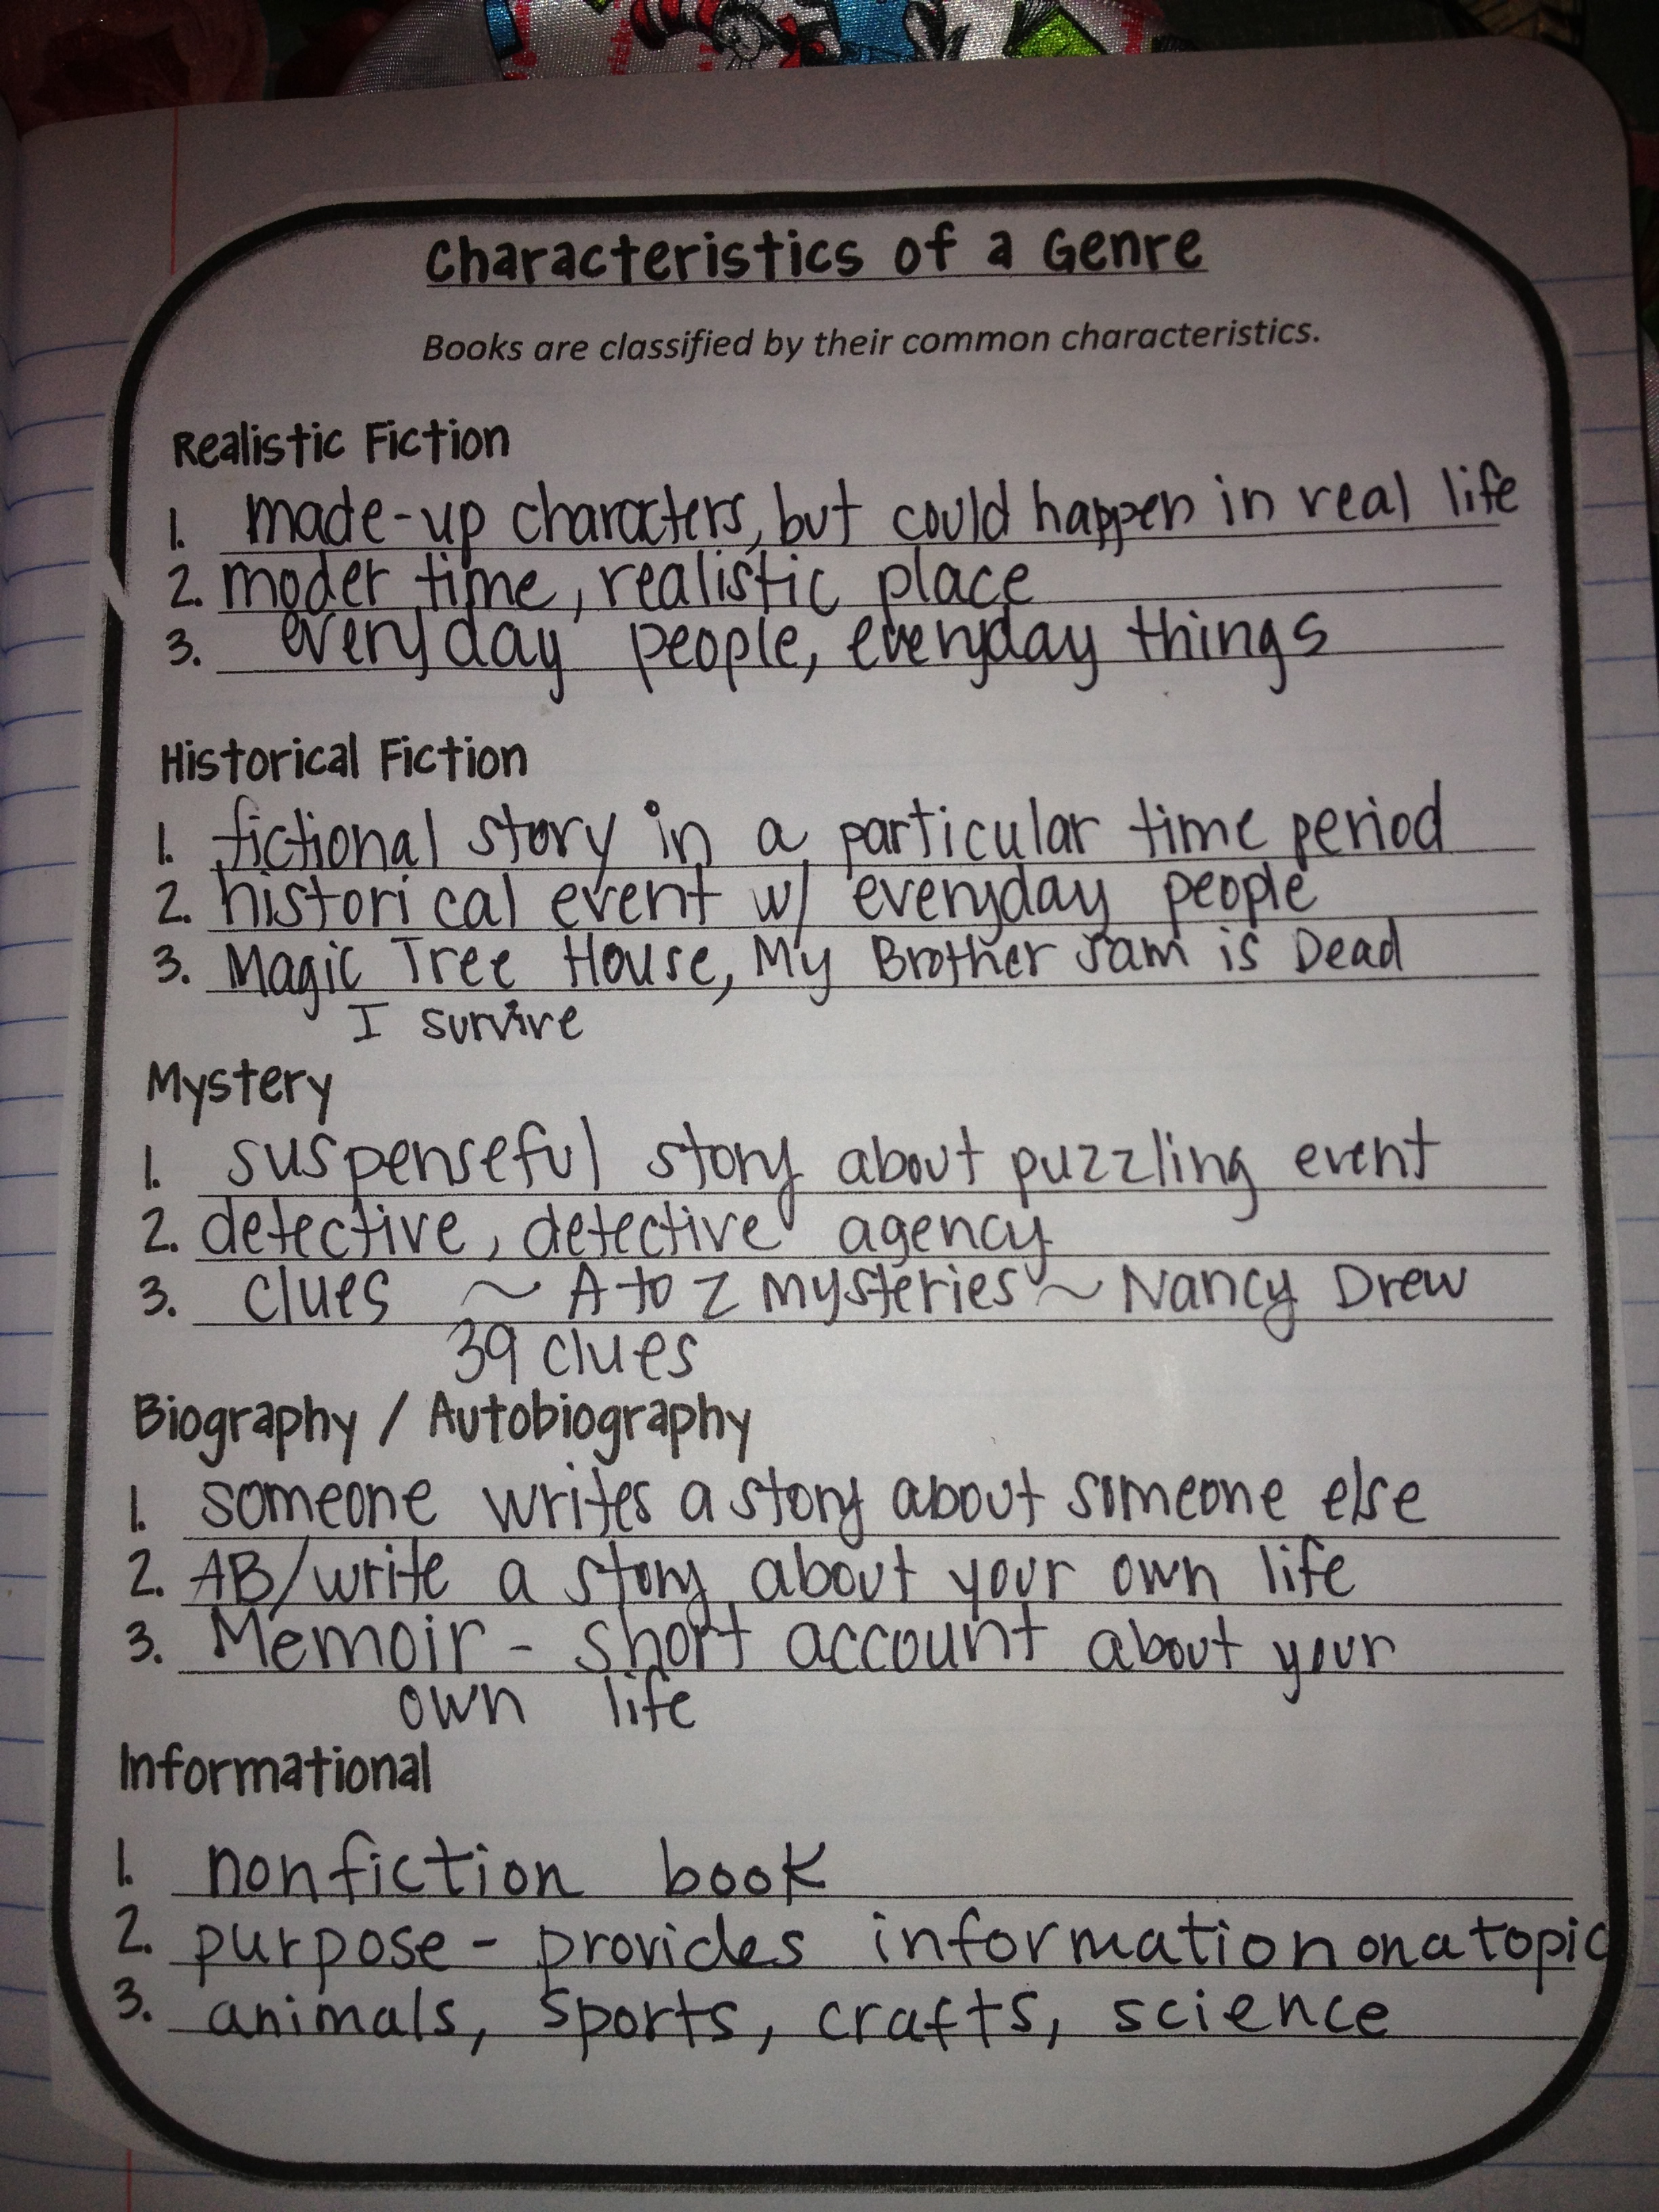 Characteristics of a Genre
Books are classified by their common characteristics.
Realistic Fiction
1. made-up characters, but could happen in real life
2. moder time, realistic place
3. everyday people, everyday things
Historical Fiction
1. fictional story in a particular time period
2. historical event w/ everyday people
3. Magic Tree House, My Brother Sam is Dead
I survive
Mystery
1. suspenseful story about puzzling event
2. detective, detective agency
3. clues ~ A to Z mysteries ~ Nancy Drew
39 clues
Biography / Autobiography
1. someone writes a story about someone else
2. AB/write a story about your own life
3. Memoir - short account about your
own life
Informational
1. nonfiction book
2. purpose - provides information on a topic
3. animals, sports, crafts, science